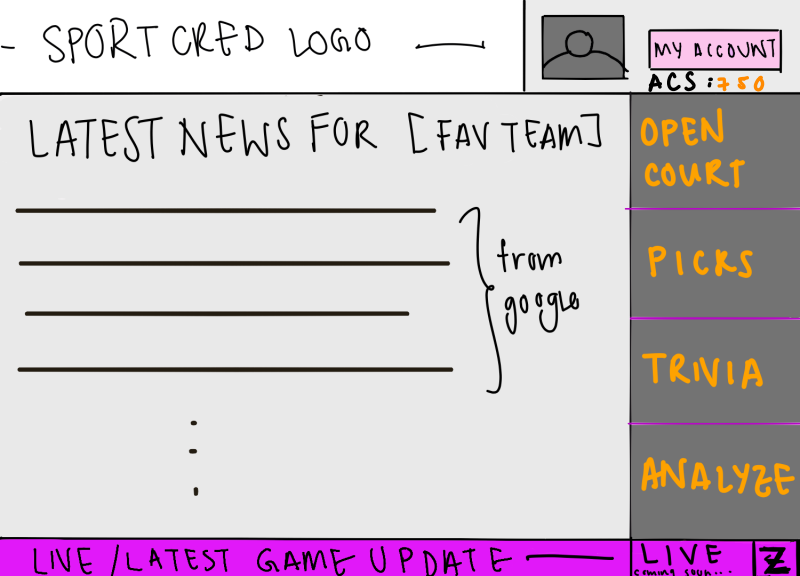 SPORT CRED LOGO
MY ACCOUNT
ACS : 750
LATEST NEWS FOR [FAV TEAM]
from
google
OPEN
COURT
PICKS
TRIVIA
ANALYZE
LIVE / LATEST GAME UPDATE
LIVE
coming soon...
Z